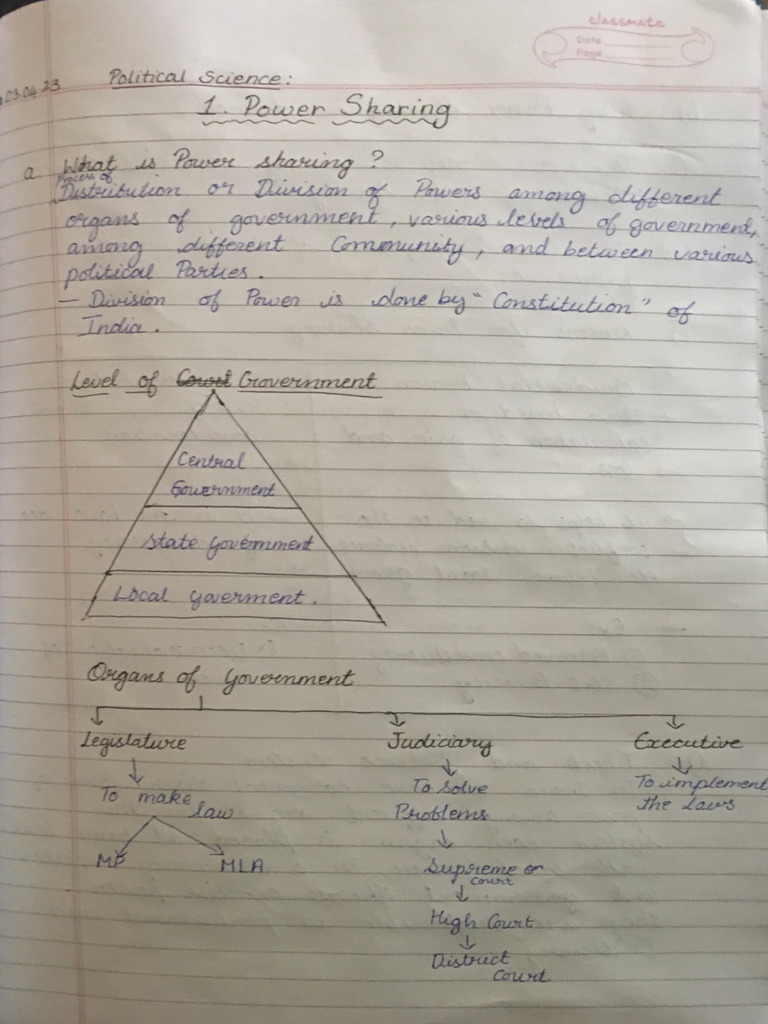 classmate
Date
Page
03.04.23
Political Science:
1. Power Sharing
a What is Power sharing ?
Process of
Distribution or Division of Powers among different
organs of government, various levels of government,
among different Community, and between various
political Parties.
– Division of Power is done by "Constitution" of
India.
Level of Court Government
Central
Government
State Government
Local Goverment.
Organs of Government
Legislature Judiciary Executive
To make law
To solve
Problems
To implement
the Laws
MP MLA
Supreme or
court
High Court
District
Court